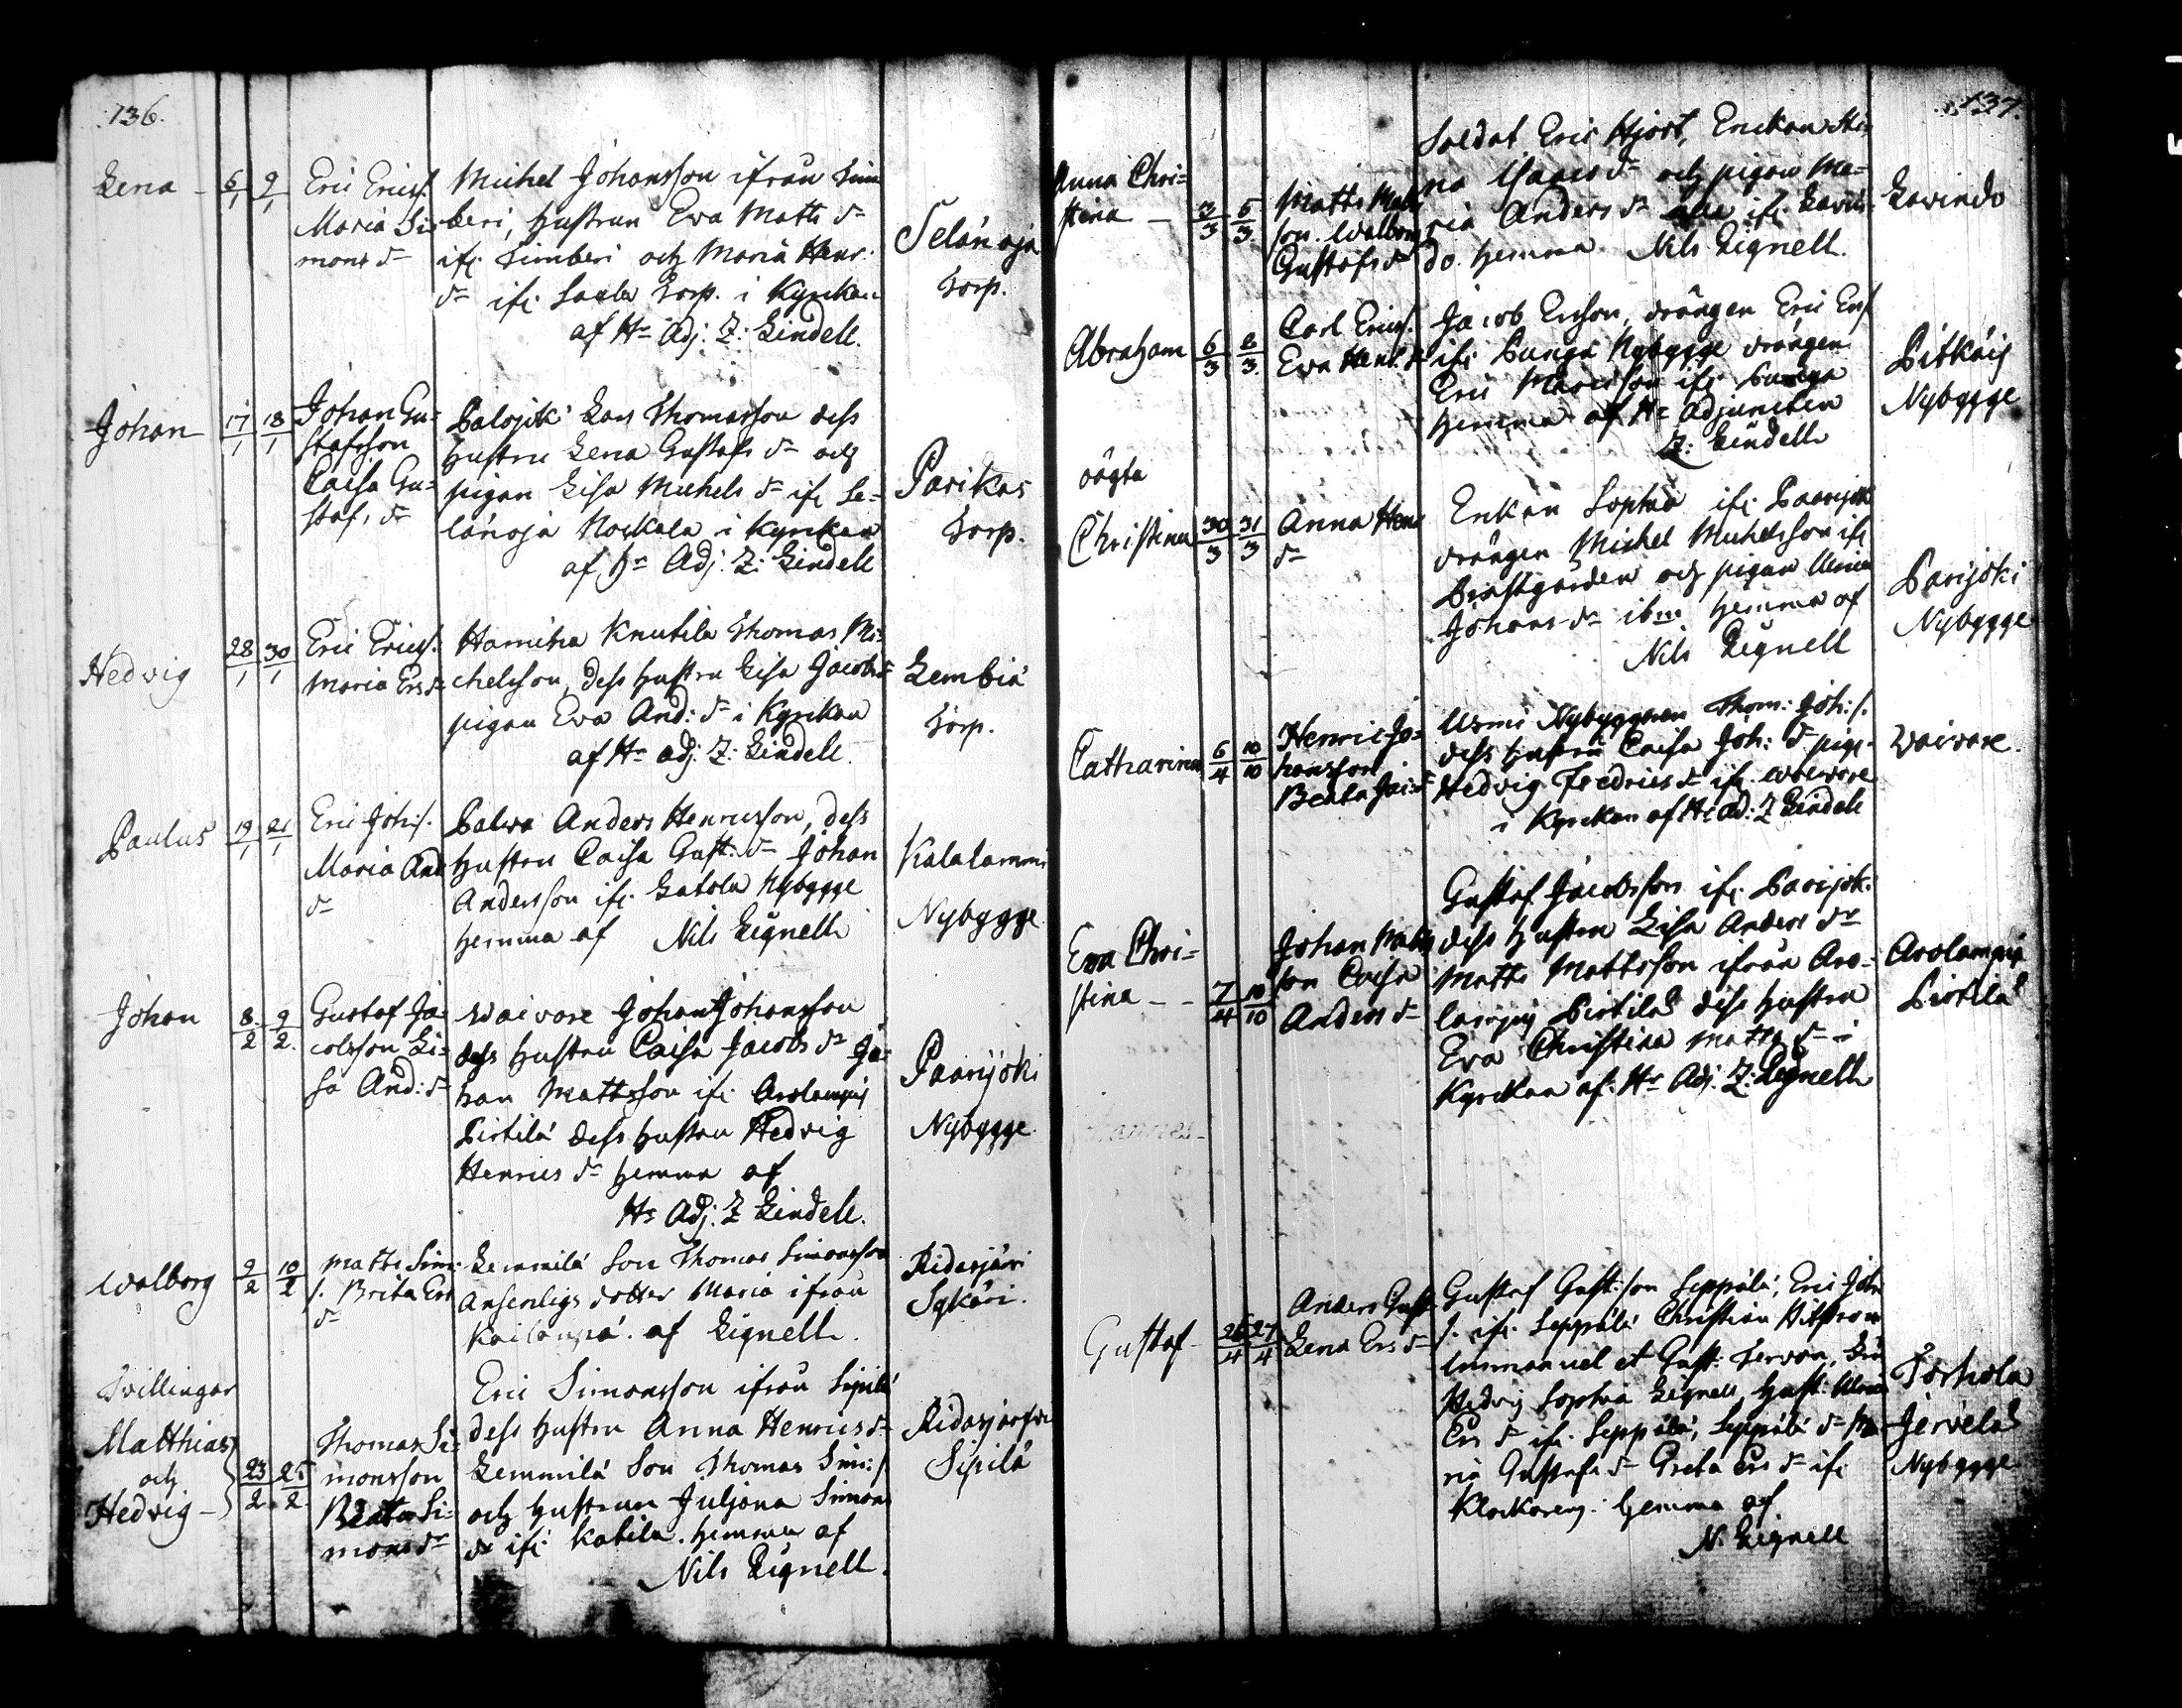 136.
Lena - 6/1 9/1
Eric Ericss.
Maria Si-
mons dr
Michel Johansson ifrån Sim
beri, hustrun Eva Matts dr
ifr. Simberi och Maria Henr.
dr ifr. Torp. i Kyrkan
af Hr Adj. Z: Lindell.
Selänoja
Torp.
Johan 17/1 18/1
Johan Gu-
stafsson
Caisa Gu-
staf. dr
Palojoki Lars Thomasson dess
hustru Lena Gustafs dr och
pigan Lisa Michels dr ifr Se-
länoja Nockala i Kyrkan
af Hr Adj. Z: Lindell
Parikas
Torp.
Hedvig 28/1 30/1
Eric Ericss.
Maria Ers dr
Hamina Knutila Thomas Mi-
chelsson, dess hustru Lisa Jacobs dr
pigan Eva And: dr i Kyrkan
af Hr adj. Z: Lindell.
Lembiä
Torp.
Paulus 19/1 21/1
Eric Joh:s.
Maria And
dr
Palva Anders Henricsson, dess
hustru Caisa Gust: dr Johan
Andersson ifr. Latola Nybygge
hemma af Nils Lignell
Kalalammi
Nybygge
Johan 8/2 9/2
Gustaf Ja-
cobsson Li-
sa And: dr
Waivare Johan Johansson
dess hustru Caisa Jacobs dr Jo-
han Mattsson ifr. Arolampi
Pirtilä dess hustru Hedvig
Henrics dr hemma af
Hr Adj. Z Lindell.
Paarijoki
Nybygge.
Walborg 9/2 10/2
Matts Sim:
s. Brita Ers
dr
Lemmilä Son Thomas Simonsson
dotter Maria ifrån
af Lignell.
Ridasjärvi
Sykäri.
Tvillingar
Matthias
och
Hedvig - 23/2 25/2
Thomas Si-
monsson
Beata Si-
mons dr
Eric Simonsson ifrån Sipilä
dess hustru Anna Henrics dr
Lemmilä Son Thomas Sim:s.
och hustrun Juljana Simons
dr ifr. Katila. hemma af
Nils Lignell.
Ridasjärfvi
Sipilä
137.
Anna Chri-
stina - 3/3 5/3
Matts Matts
son. Walborg
Gustafs dr
Soldat Eric Hjort, Enckan Sti-
na Isacs dr och pigan Ma-
ria Anders dr alla ifr. Lavin-
do. hemma Nils Lignell.
Lavindo
Abraham 6/3 8/3
Carl Ericss.
Eva Henr. dr
Jacob Ersson, drängen Eric Ers
ifr. Nybygge drängen
Eric Maursson ifr.
hemma af Hr Adjuncten
Z: Lindell
Pitkäis
Nybygge
oägta
Christina 30/3 31/3
Anna Henr
dr
Enkan Sophia ifr. Paarijoki
drängen Michel Michelsson ifr
Prästgården och pigan Ulrica
Johans dr ibm. hemma af
Nils Lignell
Parijoki
Nybygge
Catharina 6/4 10/10
Henric Jo-
hansson
Beata Jac: dr
Usmi Nybyggaren Thom: Joh:s.
dess hustru Caisa Joh: dr pig.
Hedvig Fredrics dr ifr. waivare
i Kyrckan af Hr ad: Z Lindell
Waivare.
Eva Chri-
stina - - 7/4 10/10
Johan Matts
son Caisa
Anders dr
Gustaf Jacobsson ifr. Parijok:
dess hustru Lisa Anders dr
Matts Mattsson ifrån Aro-
lampi Pirtilä dess hustru
Eva Christina Matts dr i
Kyrckan af: Hr Adj. Z: Lignell
Arolampi
Pirtilä
Gustaf - 26/4 27/4
Anders Gust.
Lena Ers dr
Gustaf Gust:son Seppälä, Eric Joh
s. ifr. Seppälä Christian
Immanuel et Gust: Tervon,
Hedvig Sophia Lignell, Hust: Ulrica
Ers dr ifr. Seppälä, Seppälä dr Ma
ria Gustafs dr Greta Ers dr ifr
Klockareg: hemma af
N: Lignell
Torhola
Jervelä
Nybygge